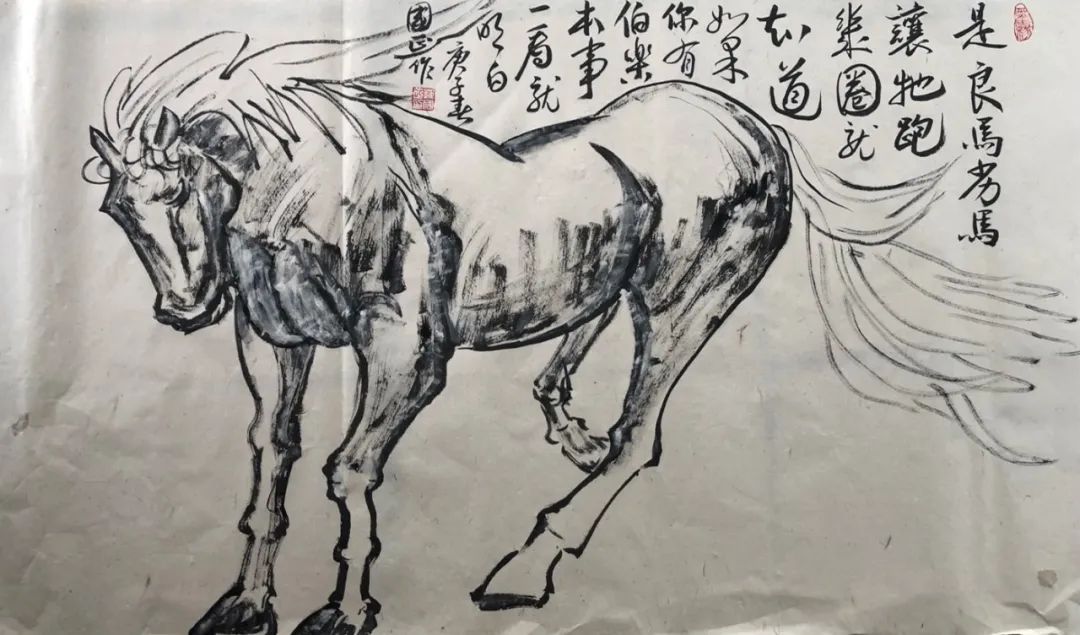 是良馬劣馬
讓牠跑
几圈就
知道
如果
你有
伯樂
本事
一看就
明白
庚子春
國正作